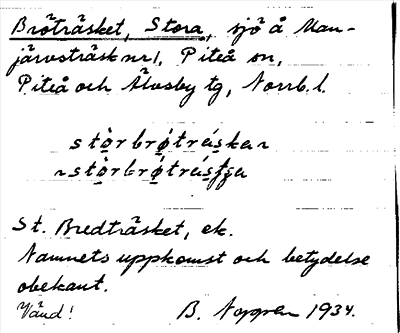 Bröträsket, Stora, sjö å Man-
järvsträsk nr 1, Piteå sn,
Piteå och Älvsby tg, Norrb. l.
stòrbrǿtráskan
~stòrbrǿtrásʃʃa
St. Bredträsket, ek.
Namnets uppkomst och betydelse
obekant.
Vänd! B. 1934.